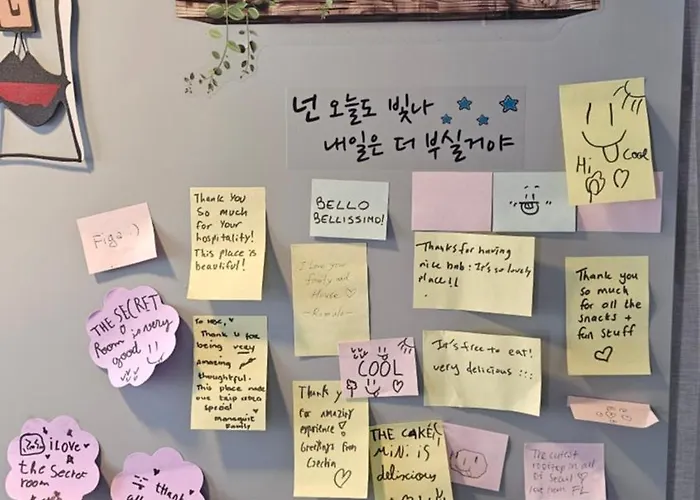 넌 오늘도 빛나
내일은 더 부실거야
Hi
Cool
Thank You
So much
for your
hospitality!
This place is
beautiful!
BELLO
BELLISSIMO!
Thanks for having
nice bab: It's so lovely
place!!
Thank you
so much
for all the
snacks +
fun stuff
THE SECRET
Room is very
good
Thank u for
being very
amazing
thoughtful.
This place made
our trip extra
special
Family
I love your
House
COOL
It's free to eat!
very delicious :::
Thank y
For amazing
experience!
Greetings from
Czechia
THE CAKE,
MiNi iS
delicious
i Love
the Secret
room
thank
The cutest
rooftop in all
of Seoul
love from FL